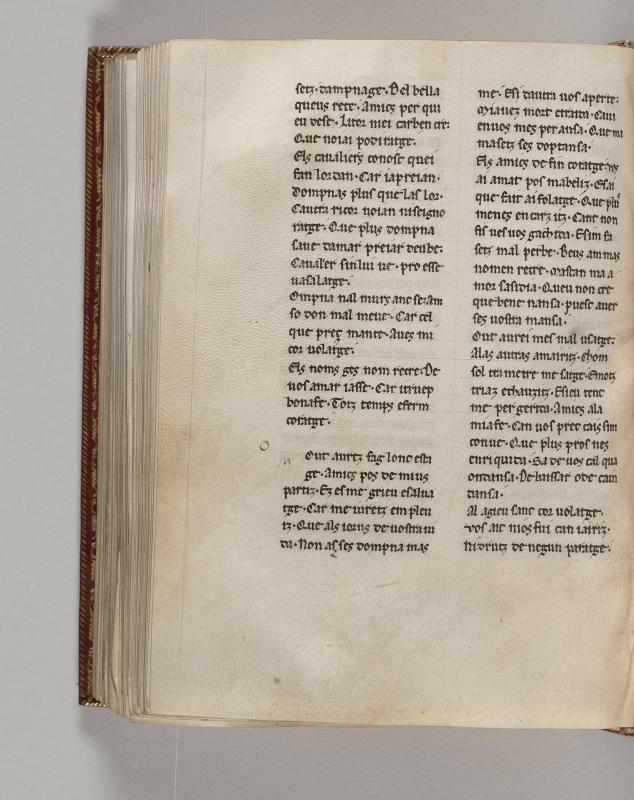 setz·dampnage·Del bella
queus rete·Amics per qui
eu
Que noiai poduratge·
Els cavaliers conosc quei
fan lor dan·Car ia preian·
dompnas plus que las lor·
Cautra ricor noian niseigno
ratge·Que plus dompna
saue damar preiar deube·
Cavalier sinlui ve·pro esse
vasalatge·
Ompna nal murs anc se am
so don mal meue·Car cel
que pretz mante·Aves mi
cor volatge·
Els noms ges nom recre·De
vos amar iasse·Car i truep
bonafe·Totz temps e ferm
coratge·
Out auretz fag lonc esta
ge·Amics pos de mi us
partiz·Ez es me grieu e salua
tge·Car me iuretz em pleu
iz·Que als iorns de vostra ui
da·Non asses dompna mas
me·E si dautra vos aperte·
Mi avez mort e traida·Cavi
en vos mes per ansa·Que mi
masetz ses doptansa·
Els amics de fin coratge·
ai amat pos mabeliz·E sai
que fait ai folatge·Que plus
menes encarz itz·Canc non
fis ves vos gachida·E sim fa
setz mal per be·Beus am mas
nomen recre·Mastan ma a
mor sasida·Queu non cre
que bene nansa·puesc aver
ses vostra mansa·
Out aurei mes mal usatge·
Alas autras amairitz·Chom
sol trametre me satge·E motz
triaz e chauzitz·E sieu tenc
me per gerida·Amics ala
mia fe·Can vos prec cais sim
conue·Que plus pros nes
enriquida·Sa de vos cal qua
ondansa·De baissar o de cam
dansa·
Al agieu sanc cor volatge·
vos aic mos fui can iairiz·
Ni drutz de negun paratge·